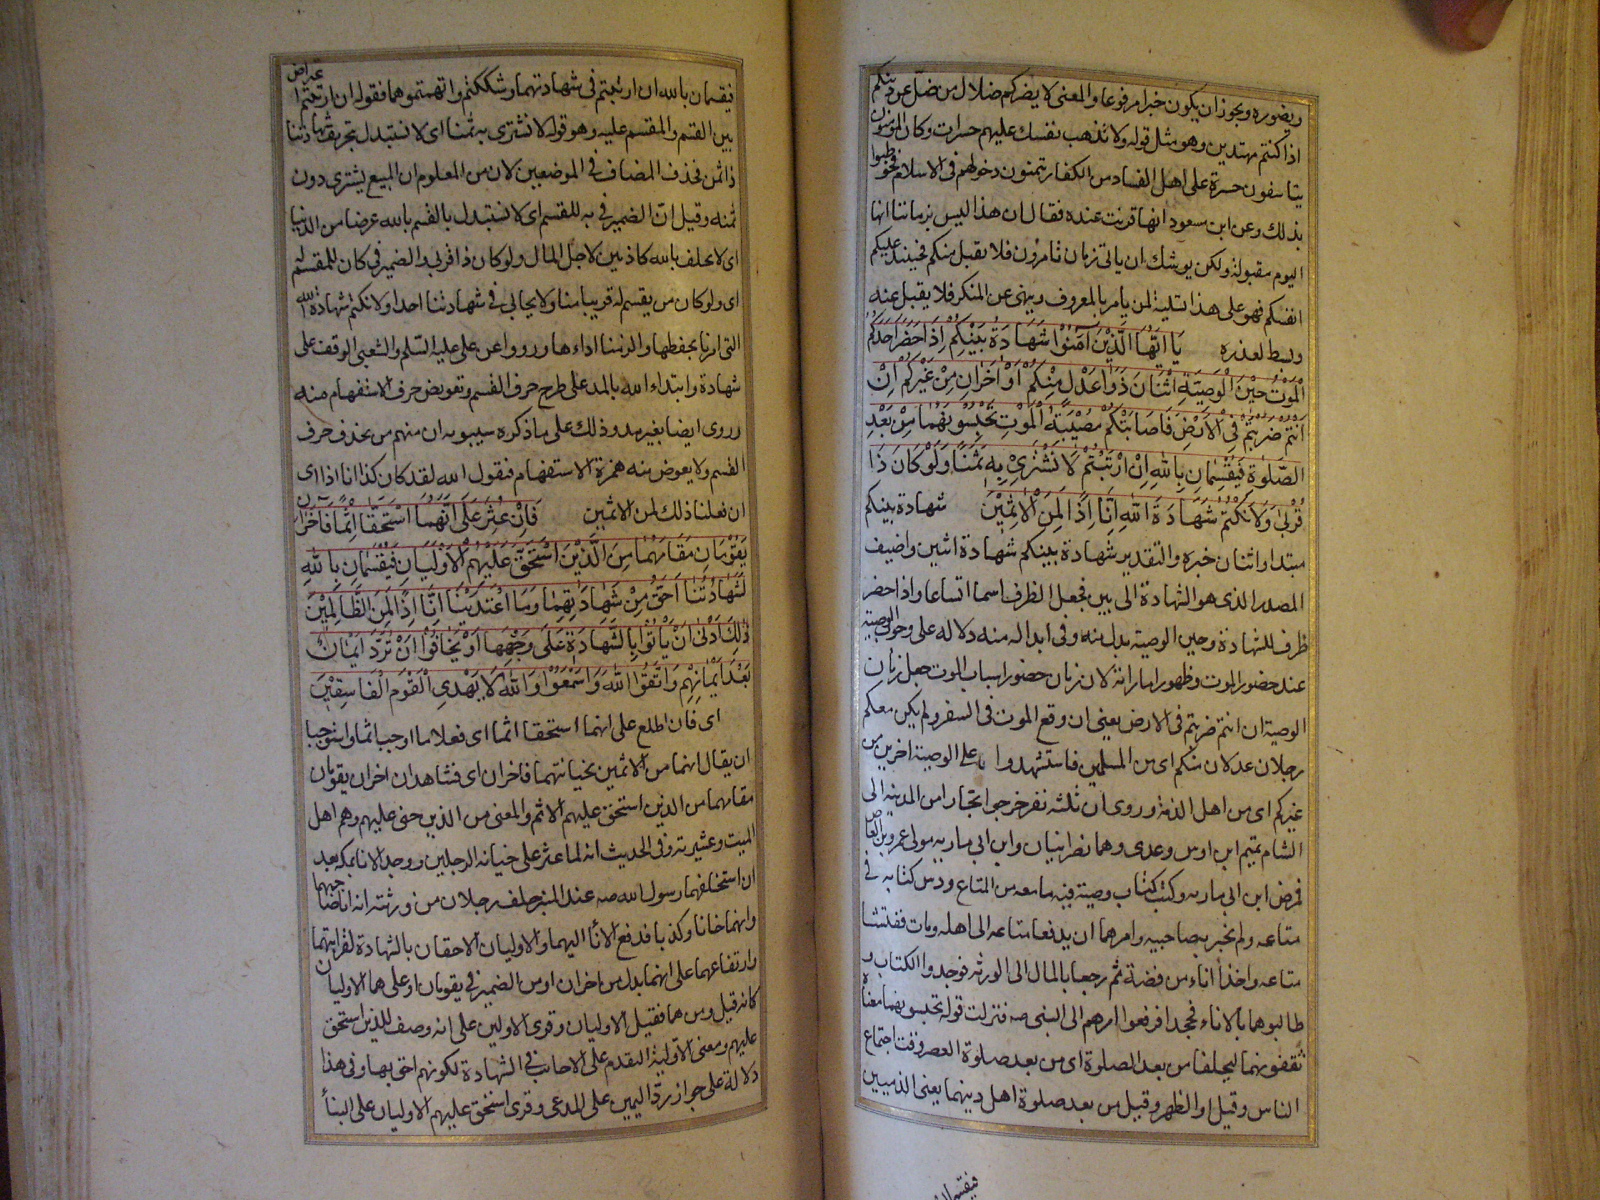 ويضوره ويجوز ان يكون خبرا مرفوعا والمعنى لا يضركم ضلال من ضل عن دينكم
اذا كنتم مهتدين وهو مثل قوله ولا تذهب نفسك عليهم حسرات وكان المؤمنون
يتاسفون حسرة على اهل الفساد من الكفار يتمنون دخولهم فى الاسلام فخوطبوا
بذلك وعن ابن مسعود انها قرئت عنده فقال ان هذا ليس بزماننا انها
اليوم مقبولة ولكن يوشك ان ياتى زمان تامرون فلا يقبل منكم فحينئذ عليكم
انفسكم فهو على هذا تسلية لمن يامر بالمعروف وينهى عن المنكر فلا يقبل عنه
وبسط لعذره يَا اَيُّهَا الَّذِيْنَ آمَنُوْا شَهَادَةُ بَيْنِكُمْ اِذَا حَضَرَ اَحَدَكُمُ
الْمَوْتُ حِيْنَ الْوَصِيَّةِ اثْنَانِ ذَوَا عَدْلٍ مِنْكُمْ اَوْ آخَرَانِ مِنْ غَيْرِكُمْ اِنْ
اَنْتُمْ ضَرَبْتُمْ فِى الْاَرْضِ فَاَصَابَتْكُمْ مُصِيْبَةُ الْمَوْتِ تَحْبِسُوْنَهُمَا مِنْ بَعْدِ
الصَّلٰوةِ فَيُقْسِمَانِ بِاللهِ اِنْ ارْتَبْتُمْ لَا نَشْتَرِىْ بِهٖ ثَمَنًا وَلَوْ كَانَ ذَا
قُرْبٰى وَلَا نَكْتُمُ شَهَادَةَ اللهِ اِنَّا اِذًا لَمِنَ الْاٰثِمِيْنَ شهادة بينكم
مبتدا واثنان خبره والتقدير شهادة بينكم شهادة اثنين واضيف
المصدر الذى هو الشهادة الى بين فجعل الظرف اسما اتساعا واذا حضر
ظرف للشهادة وحين الوصية بدل منه وفى ابداله منه دلاله على وجوب الوصية
عند حضور الموت وظهور اماراته لان زمان حضور اسباب الموت جعل زمان
الوصية ان انتم ضربتم فى الارض يعنى ان وقع الموت فى السفر ولم يكن معكم
رجلان عدلان منكم اى من المسلمين فاستشهدوا على الوصية اخرين من
غيركم اى من اهل الذمة وروى ان ثلثه نفر خرجوا تجارا من المدينه الى
الشام تميم ابن اوس وعدى وهما نصرانيان وابن ابى ماريه مولى عمرو بن العاص
فمرض ابن ابى ماريه وكتب كتاب وصية فيه ما معه من المتاع ودس كتابه فى
متاعه ولم يخبر به صاحبيه وامرهما ان يدفعا متاعه الى اهله ومات ففتشا
متاعه واخذا اناء من فضة ثم رجعا بالمال الى الورثه فوجدوا الكتاب و
طالبوهما بالاناء فجحدا فرفعوا امرهم الى النبى صه فنزلت قوله تحبسونهما معناه
تقفونهما ليحلفا من بعد الصلوة اى من بعد صلوة العصر وقت اجتماع
الناس وقيل او الظهر وقيل من بعد صلوة اهل دينهما يعنى الذميين
فيقسمان بالله ان ارتبتم فى شهادتهما وشككتم واتهمتموهما فقوله ان ارتبتم اعتراض
بين القسم والمقسم عليه وهو قوله لا نشترى به ثمنا اى لا نستبدل بتحريف شهادتنا
ذا ثمن فحذف المضاف فى الموضعين لان من المعلوم ان المبيع يشترى دون
ثمنه وقيل ان الضمير فى به للقسم اى لا نستبدل بالقسم بالله عرضا من الدنيا
اى لا نحلف بالله كاذبين لاجل المال ولو كان ذا قربى والضمير فى كان للمقسم له
اى ولو كان من يقسم له قريبا منا ولا يحابى فى شهادتنا احدا ولا نكتم شهادة الله
التى امرنا بحفظها والزمنا اداءها ورووا عن على عليه السلم والشعبى الوقف على
شهادة وابتداء الله بالمد على طرح حرف القسم وتعويض حرف الاستفهام منه
وروى ايضا بغير مد وذلك على ما ذكره سيبويه ان منهم من يحذف حرف
القسم ولا يعوض منه همزة الاستفهام فيقول الله لقد كان كذا انا اذا اى
ان فعلنا ذلك لمن الاثمين فَاِنْ عُثِرَ عَلٰى اَنَّهُمَا اسْتَحَقَّا اِثْمًا فَآخَرَانِ
يَقُوْمَانِ مَقَامَهُمَا مِنَ الَّذِيْنَ اسْتَحَقَّ عَلَيْهِمُ الْاَوْلَيَانِ فَيُقْسِمَانِ بِاللهِ
لَشَهَادَتُنَا اَحَقُّ مِنْ شَهَادَتِهِمَا وَمَا اعْتَدَيْنَا اِنَّا اِذًا لَمِنَ الظَّالِمِيْنَ
ذٰلِكَ اَدْنٰى اَنْ يَاْتُوْا بِالشَّهَادَةِ عَلٰى وَجْهِهَا اَوْ يَخَافُوْا اَنْ تُرَدَّ اَيْمَانٌ
بَعْدَ اَيْمَانِهِمْ وَاتَّقُوا اللهَ وَاسْمَعُوْا وَاللهُ لَا يَهْدِى الْقَوْمَ الْفَاسِقِيْنَ
اى فان اطلع على انهما استحقا اثما اى فعلا ما اوجب اثما واستوجبا
ان يقال انهما من الاثمين بخيانتهما فاخران اى فشاهدان اخران يقومان
مقامهما من الذين استحق عليهم الاثم والمعنى من الذين جنى عليهم وهم اهل
الميت وعشيرته وفى الحديث انه لما عثر على خيانه الرجلين ووجد الانا بمكه بعد
ان استحلفهما رسول الله صه عند المنبر حلف رجلان من ورثته انه انا صاحبهما
وانهما خانا وكذبا فدفع الانأ اليهما والاوليان الاحقان بالشهادة لقرابتهما
وارتفاعهما على انهما بدل من اخران او من الضمير فى يقومان او على هما الاوليان
كانه قيل ومن هما فقيل الاوليان وقرى الاولين على انه وصف للذين استحق
عليهم ومعنى الاولية التقدم على الاجانب فى الشهادة لكونهم احق بها وفى هذا
دلالة على جواز رد اليمين على المدعى وقرى استحق عليهم الاوليان على البنأ